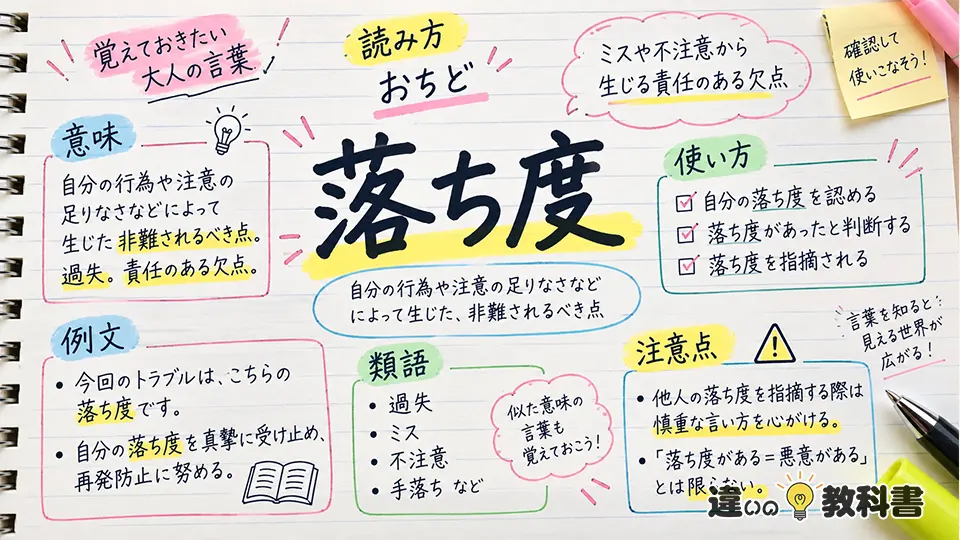 覚えておきたい
大人の言葉
読み方
おちど
ミスや不注意から
生じる責任のある欠点
確認して
使いこなそう！
意味
自分の行為や注意の
足りなさなどによって
生じた非難されるべき点。
過失。責任のある欠点。
落ち度
自分の行為や注意の足りなさなど
によって生じた、非難されるべき点
使い方
自分の落ち度を認める
落ち度があったと判断する
落ち度を指摘される
例文
• 今回のトラブルは、こちらの
落ち度です。
• 自分の落ち度を真摯に受け止め、
再発防止に努める。
類語
• 過失
• ミス
• 不注意
• 手落ち など
似た意味の
言葉も
覚えておこう！
注意点
• 他人の落ち度を指摘する際は
慎重な言い方を心がける。
• 「落ち度がある＝悪意がある」
とは限らない。
言葉を知ると
見える世界が
広がる！
違いの教科書